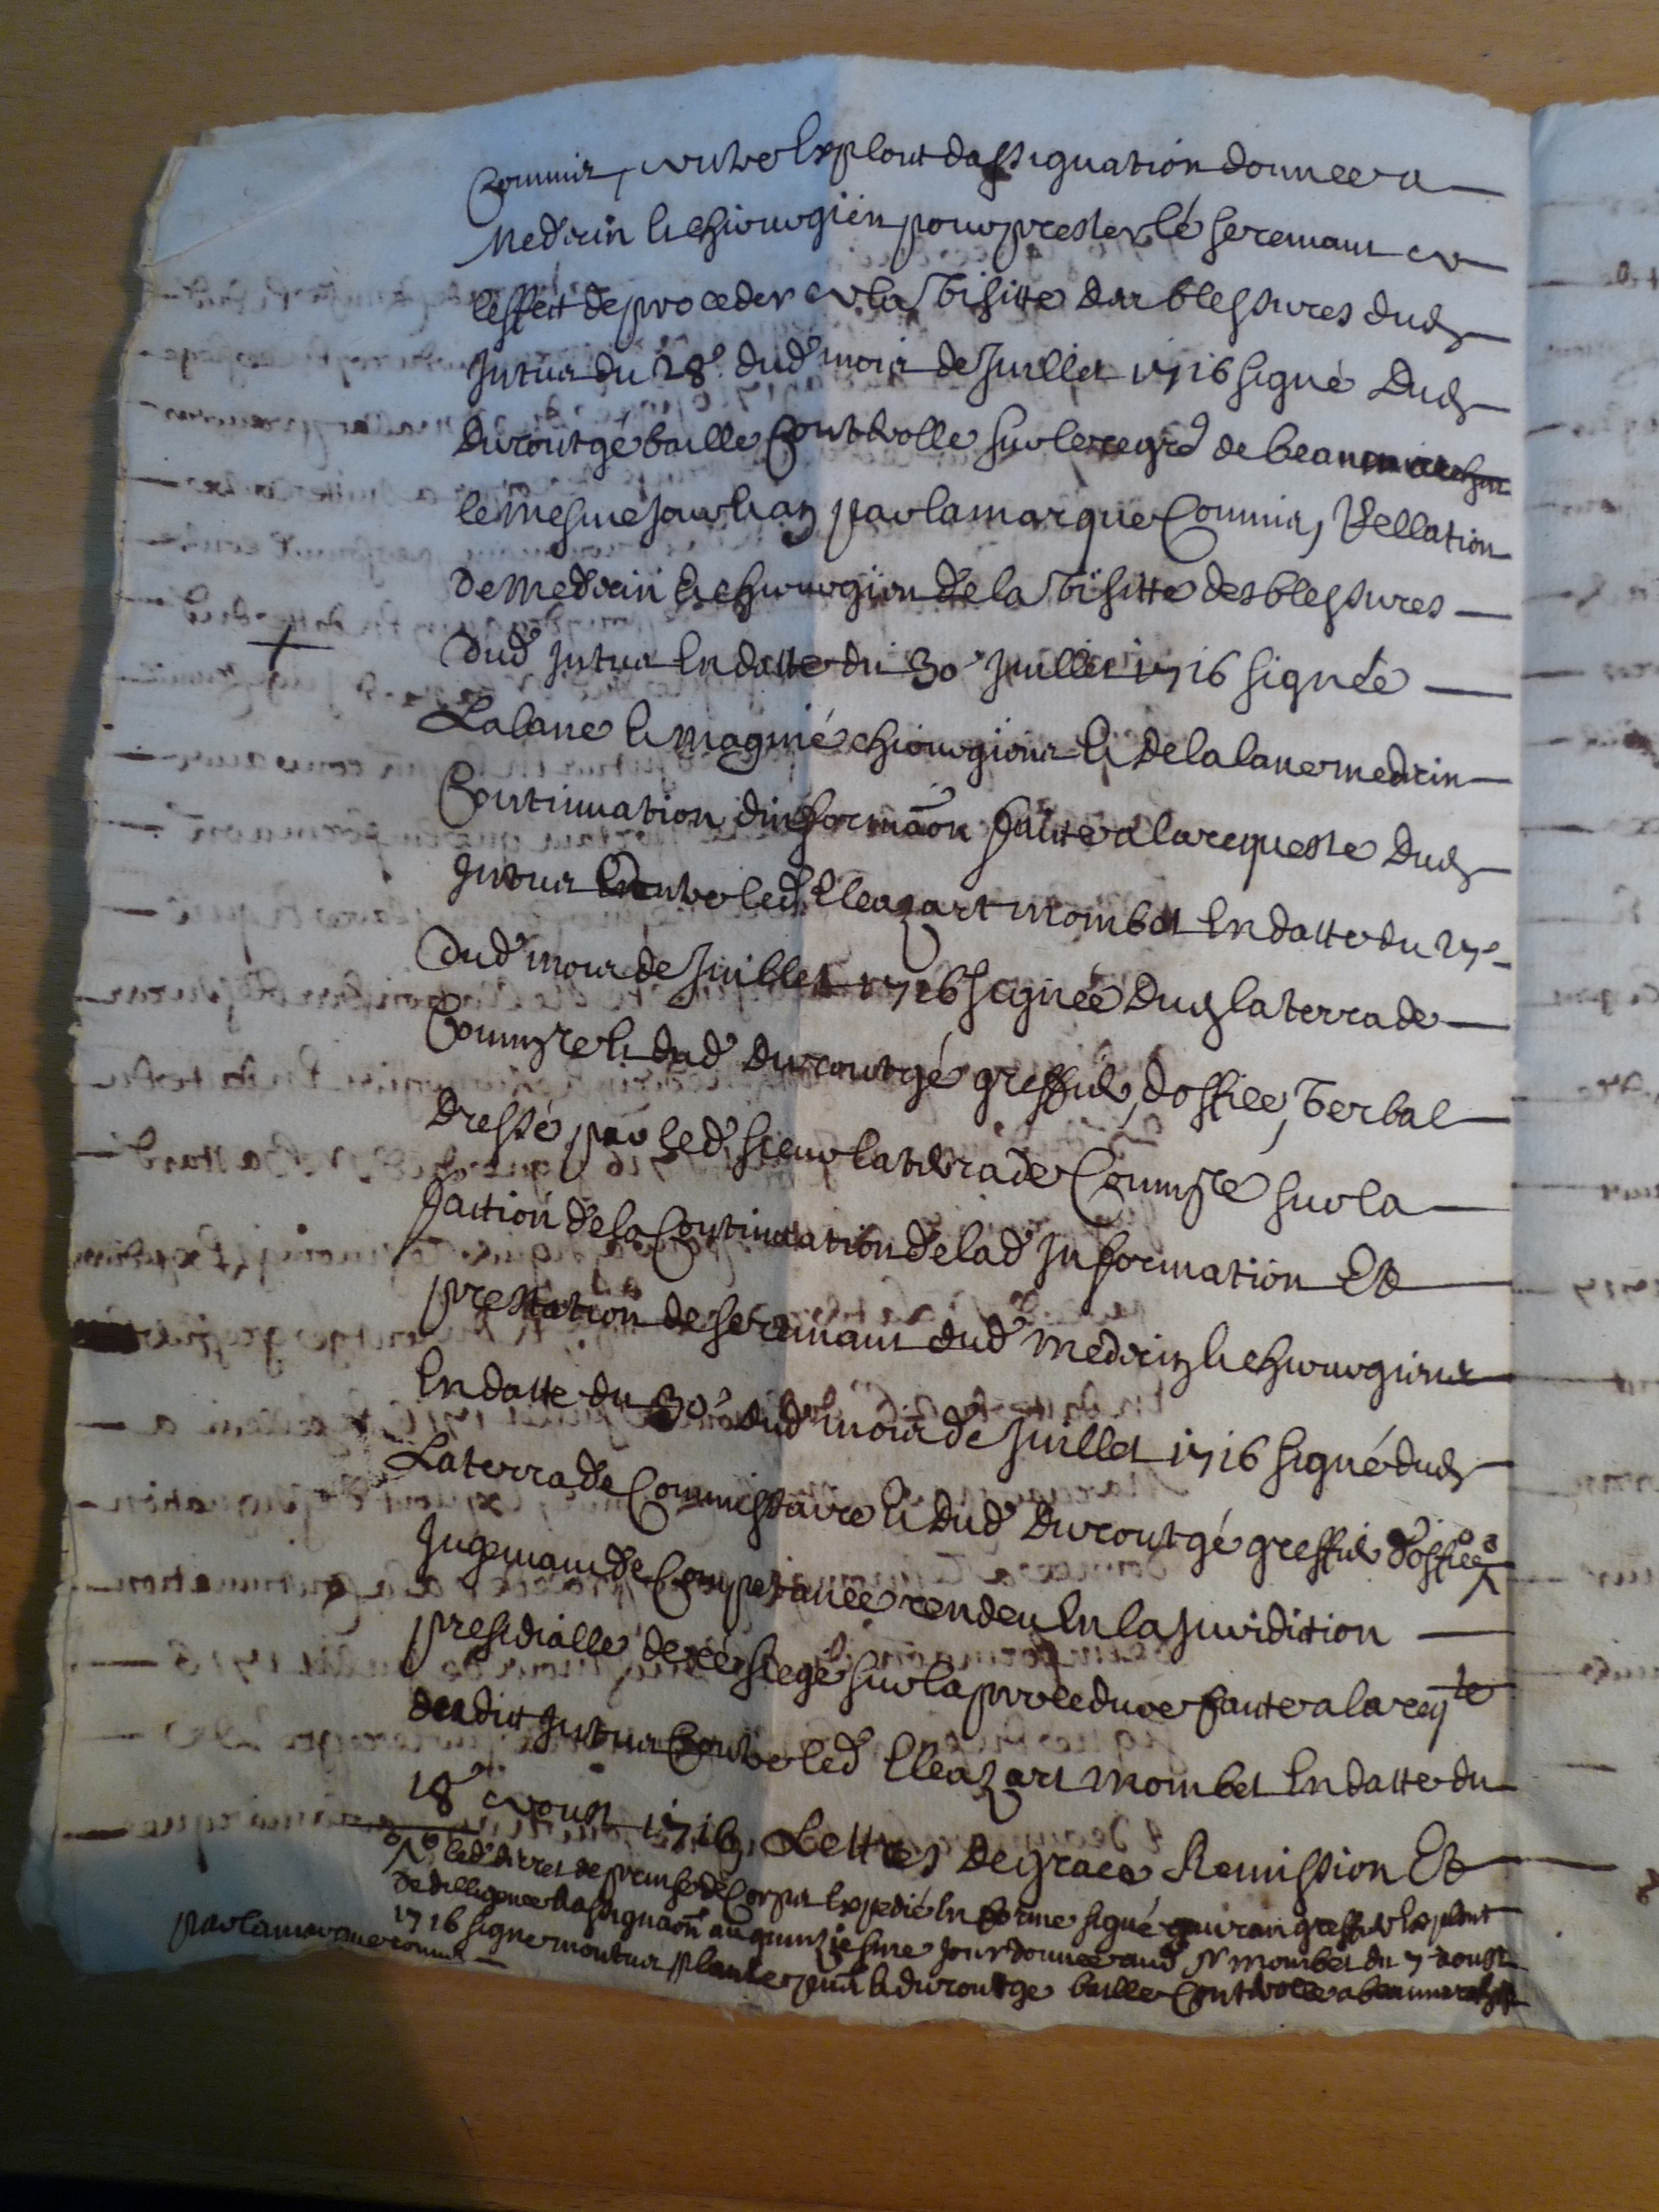 Commis, autre Exploit dassignation donnee a
Medecin & chirurgien pour prester le seremant a
leffect de proceder a la visitte des blessures dud
Jutus du 28e. dud mois de Juillet 1716 signé Dud
Duroutgé baille Controlle sur le regre de beaumarches
le mesme jour & an par lamarque Commis, Rellation
de medecin & chirurgien de la visitte des blessures
dud Jutus En datte du 30e Juillet 1716 signée
Lalane & magnié chirurgiens & de lalane medecin
Continuation dinformãon faitte a la requeste Dud
Jutus Contre led Eleazart mombet En datte du 27e
Dud mois de Juillet 1716 signée Dud laterrade
Commre & dud Duroutgé greffier, doffice, verbal
Dressé par led sieur laterrade Commre sur la
faction de la Continuation de lad Information Et
prestation de seremant dud medecin & chirurgiens
En datte du 30e dud mois de Juillet 1716 signé dud
Laterrade Commissaire & dud Duroutgé greffier d'office
Jugemant de Competance rendeu En la Juridition
presidialle de ce siege sur la procedure faite a la reqte
dudict Jutus Contre led Eleazart mombet En datte du
18e aoust 1716, Lettres de grace Remission Et
led decret de prinse de Corps Expedié En forme signé greffier Exploit
de dilligence & assignaon au quinziesme jour donnee aud Sr mombet du 7 aoust
1716 signe & duroutge baille Controlle a beaumarches
par lamarque commis